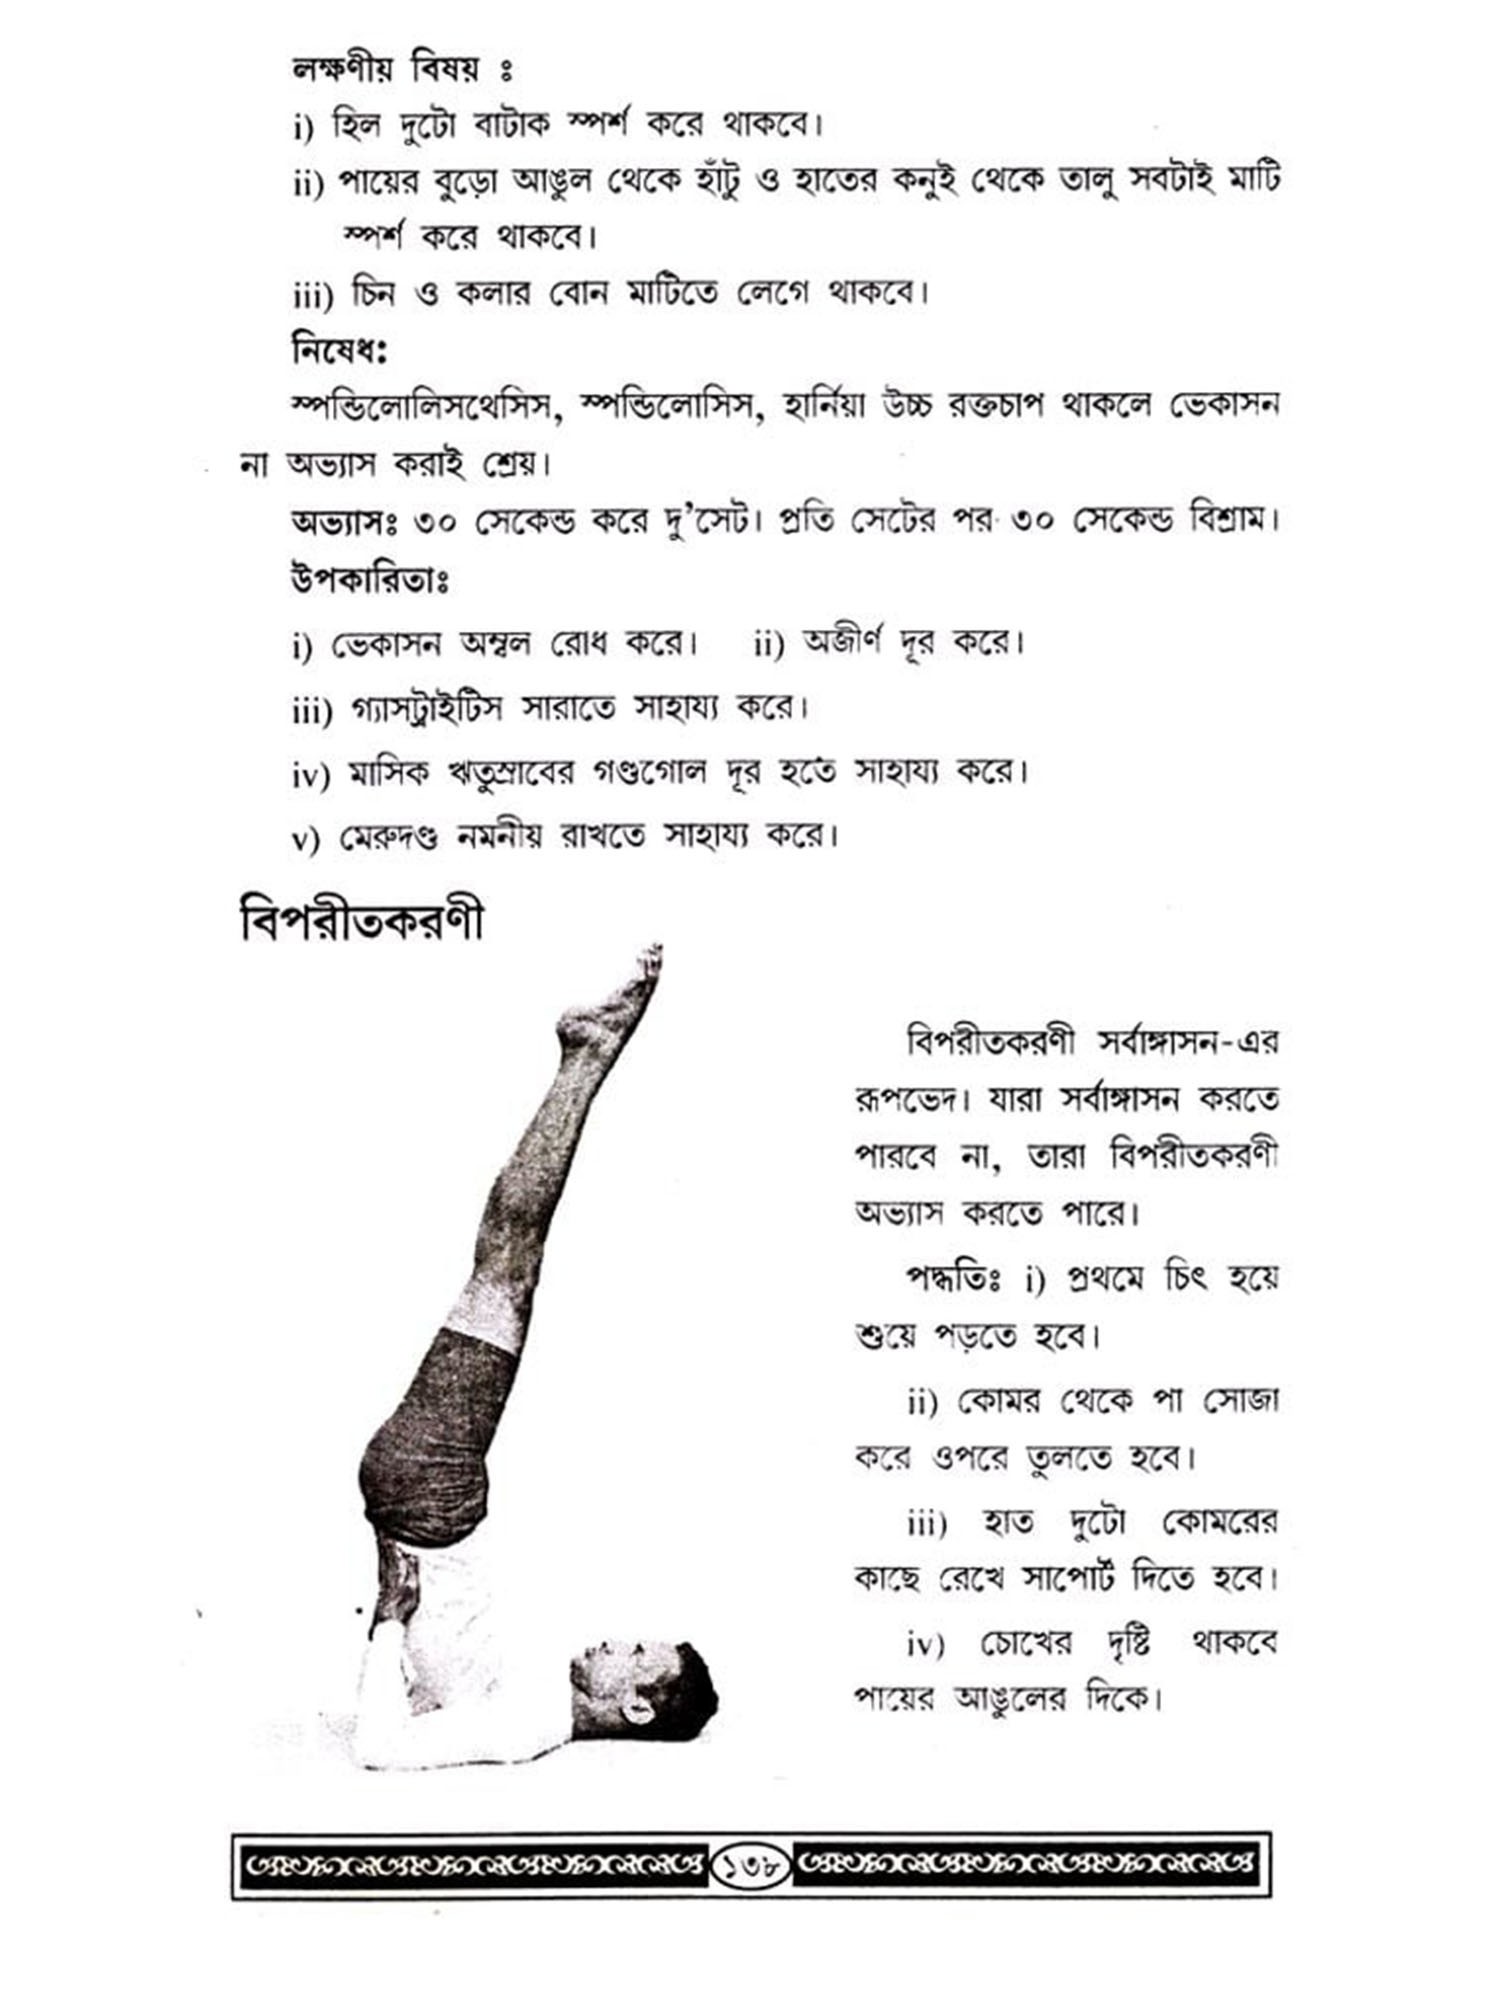 লক্ষণীয় বিষয় ঃ
i) হিল দুটো বাটাক স্পর্শ করে থাকবে।
ii) পায়ের বুড়ো আঙুল থেকে হাঁটু ও হাতের কনুই থেকে তালু সবটাই মাটি
স্পর্শ করে থাকবে।
iii) চিন ও কলার বোন মাটিতে লেগে থাকবে।
নিষেধ:
স্পন্ডিলোলিসথেসিস, স্পন্ডিলোসিস, হার্নিয়া উচ্চ রক্তচাপ থাকলে ভেকাসন
না অভ্যাস করাই শ্রেয়।
অভ্যাসঃ ৩০ সেকেন্ড করে দু'সেট। প্রতি সেটের পর ৩০ সেকেন্ড বিশ্রাম।
উপকারিতাঃ
i) ভেকাসন অম্বল রোধ করে। ii) অজীর্ণ দূর করে।
iii) গ্যাসট্রাইটিস সারাতে সাহায্য করে।
iv) মাসিক ঋতুস্রাবের গণ্ডগোল দূর হতে সাহায্য করে।
v) মেরুদণ্ড নমনীয় রাখতে সাহায্য করে।
বিপরীতকরণী
বিপরীতকরণী সর্বাঙ্গাসন-এর
রূপভেদ। যারা সর্বাঙ্গাসন করতে
পারবে না, তারা বিপরীতকরণী
অভ্যাস করতে পারে।
পদ্ধতিঃ i) প্রথমে চিৎ হয়ে
শুয়ে পড়তে হবে।
ii) কোমর থেকে পা সোজা
করে ওপরে তুলতে হবে।
iii) হাত দুটো কোমরের
কাছে রেখে সাপোর্ট দিতে হবে।
iv) চোখের দৃষ্টি থাকবে
পায়ের আঙুলের দিকে।
১৩৮